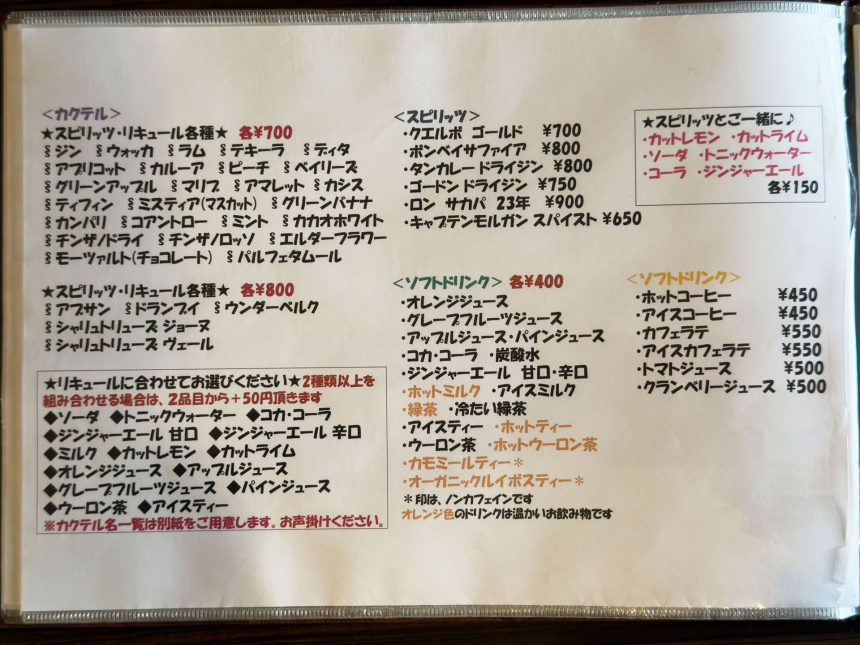 <カクテル>
★スピリッツ・リキュール各種★ 各¥700
⸾ジン ⸾ウォッカ ⸾ラム ⸾テキーラ ⸾ディタ
⸾アプリコット ⸾カルーア ⸾ピーチ ⸾ベイリーズ
⸾グリーンアップル ⸾マリブ ⸾アマレット ⸾カシス
⸾ティフィン ⸾ミスティア(マスカット) ⸾グリーンバナナ
⸾カンパリ ⸾コアントロー ⸾ミント ⸾カカオホワイト
⸾チンザノドライ ⸾チンザノロッソ ⸾エルダーフラワー
⸾モーツァルト(チョコレート) ⸾パルフェタムール
★スピリッツ・リキュール各種★ 各¥800
⸾アブサン ⸾ドランブイ ⸾ウンダーベルク
⸾シャリュトリューズ ジョーヌ
⸾シャリュトリューズ ヴェール
★リキュールに合わせてお選びください★2種類以上を
組み合わせる場合は、2品目から+50円頂きます
◆ソーダ ◆トニックウォーター ◆コカ・コーラ
◆ジンジャーエール 甘口 ◆ジンジャーエール 辛口
◆ミルク ◆カットレモン ◆カットライム
◆オレンジジュース ◆アップルジュース
◆グレープフルーツジュース ◆パインジュース
◆ウーロン茶 ◆アイスティー
※カクテル名一覧は別紙をご用意します。お声掛けください。
<スピリッツ>
・クエルボ ゴールド ¥700
・ボンベイサファイア ¥800
・タンカレー ドライジン ¥800
・ゴードン ドライジン ¥750
・ロン サカパ 23年 ¥900
・キャプテンモルガン スパイスト ¥650
★スピリッツとご一緒に♪
・カットレモン ・カットライム
・ソーダ ・トニックウォーター
・コーラ ・ジンジャーエール
各¥150
<ソフトドリンク> 各¥400
・オレンジジュース
・グレープフルーツジュース
・アップルジュース・パインジュース
・コカ・コーラ ・炭酸水
・ジンジャーエール 甘口・辛口
・ホットミルク ・アイスミルク
・緑茶 ・冷たい緑茶
・アイスティー ・ホットティー
・ウーロン茶 ・ホットウーロン茶
・カモミールティー＊
・オーガニックルイボスティー＊
＊印は、ノンカフェインです
オレンジ色のドリンクは温かいお飲み物です
<ソフトドリンク>
・ホットコーヒー ¥450
・アイスコーヒー ¥450
・カフェラテ ¥550
・アイスカフェラテ ¥550
・トマトジュース ¥500
・クランベリージュース ¥500